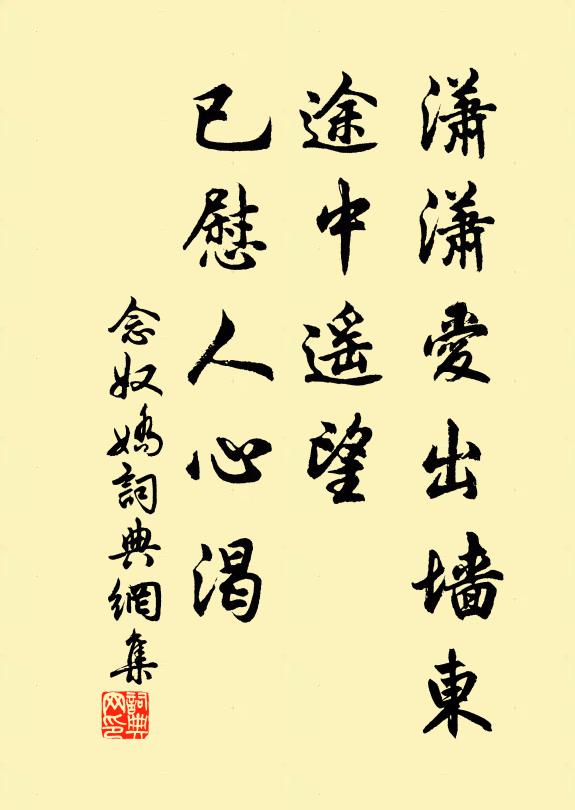 瀟瀟愛出墙東
途中遥望
已慰人心渴
念奴嬌詞典網集
詞典
网印